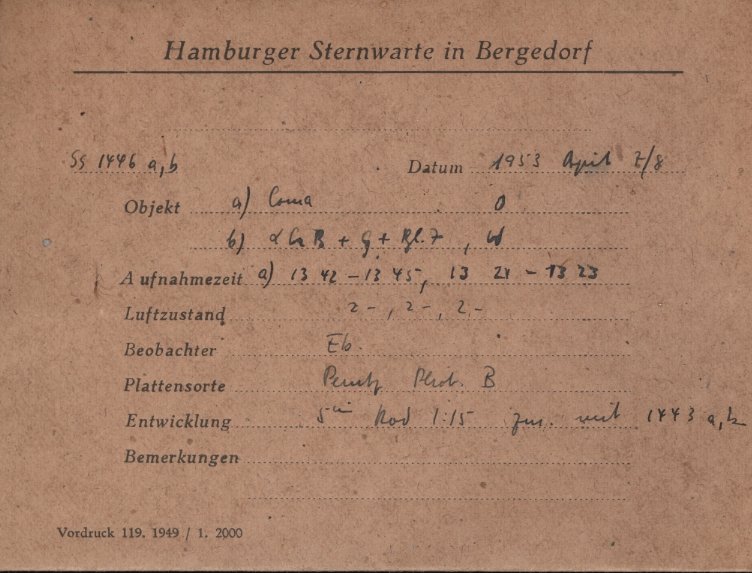 Hamburger Sternwarte in Bergedorf
SS 1446 a,b Datum 1953 April 7/8
Objekt a) Coma O
b) α + G + , W
Aufnahmezeit a) 13 42 – 13 45, 13 21 – 13 23
Luftzustand 2-, 2-, 2-
Beobachter Eb.
Plattensorte Perutz Phot. B
Entwicklung 5m Rod 1:15 zus. mit 1443 a,b
Bemerkungen
Vordruck 119. 1949 / 1. 2000